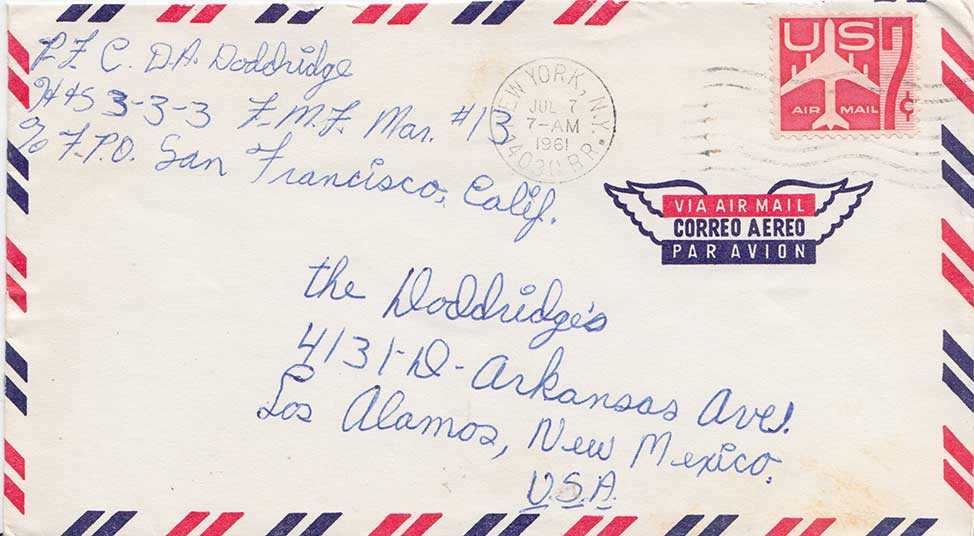 PFC. D.A. Doddridge
H&S 3-3-3 F.M.F. Mar. #13
c/o F.P.O. San Francisco, Calif.
NEW YORK, N.Y.
JUL 7
7-AM
1961
US 7¢
AIR MAIL
VIA AIR MAIL
CORREO AEREO
PAR AVION
the Doddridge's
4131-D-Arkansas Ave.
Los Alamos, New Mexico.
U.S.A.